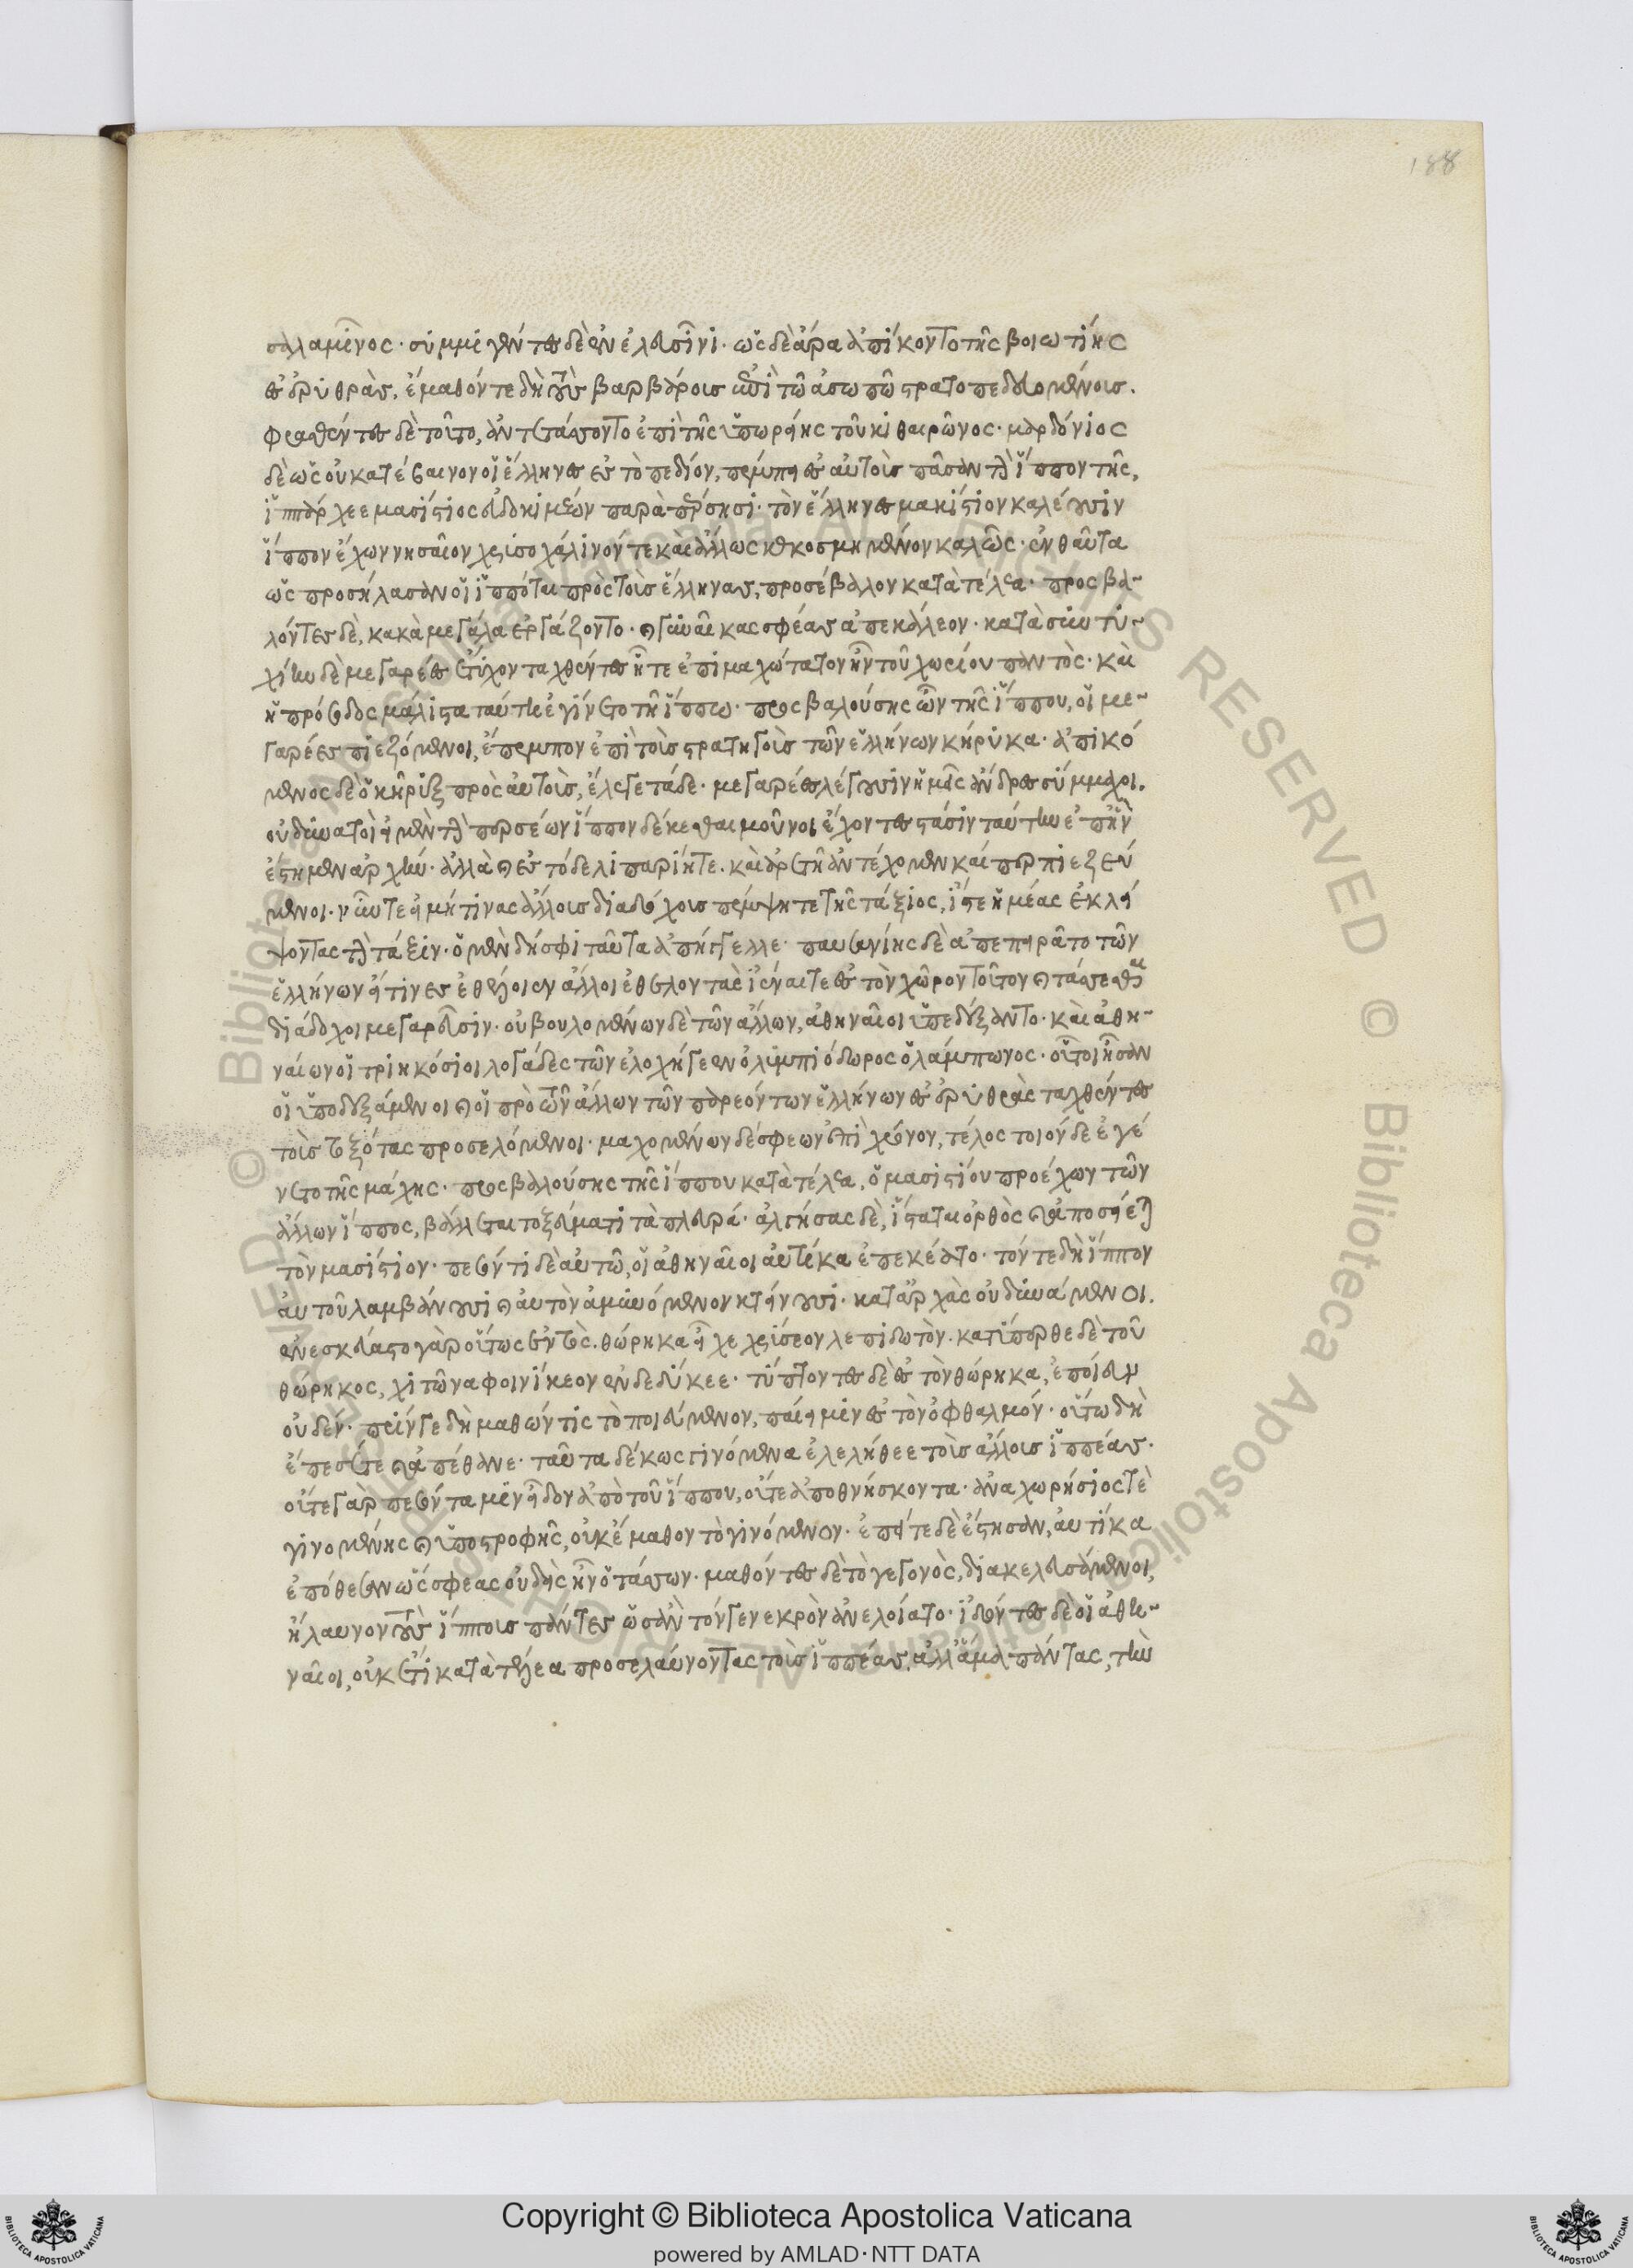 188
σαλαμῖνος· συμμιγέντες δὲ ἐν ἐλευσῖνι. ὡς δὲ ἄρα ἀπίκοντο τῆς βοιωτίης
ἐς ἐρυθρὰς, ἔμαθόν τε δὴ τοὺς βαρβάρους ἐπὶ τῶ ἀσωπῶ στρατοπεδευομένους.
φρασθέντες δὲ τοῦτο, ἀντετάσσοντο ἐπὶ τῆς ὑπωρέης τοῦ κιθαιρῶνος· μαρδόνιος
δὲ ὡς οὐ κατέβαινον οἱ ἕλληνες ἐς τὸ πεδίον, πέμπει ἐς αὐτοὺς πᾶσαν τὴν ἵππον τῆς,
ἱππάρχεε μασίστιος εὐδοκιμέων παρὰ πέρσησι· τὸν ἕλληνες μακίστιον καλέουσιν
ἵππον ἔχων νησαῖον χρυσοχάλινόν τε καὶ ἄλλως κεκοσμημένον καλῶς· ἐνθαῦτα
ὡς προσήλασαν οἱ ἱππόται πρὸς τοὺς ἕλληνας, προσέβαλον κατὰ τέλεα· προσβα-
λόντες δὲ, κακὰ μεγάλα ἐργάζοντο· καὶ γυναῖκας σφέας ἀπεκάλεον· κατὰ συντυ-
χίην δὲ μεγαρέες ἔτυχον ταχθέντες ἧτε ἐπιμαχώτατον ἦν τοῦ χωρίου παντὸς· καὶ
ἡ πρόσοδος μάλιστα ταύτην ἐγίνετο τῆ ἵππω· προσβαλούσης ὦν τῆς ἵππου, οἱ με-
γαρέες πιεζόμενοι, ἔπεμπον ἐπὶ τοὺς στρατηγοὺς τῶν ἑλλήνων κήρυκα· ἀπικό
μενος δὲ ὁ κῆρυξ πρὸς αὐτοὺς, ἔλεγε τάδε· μεγαρέες λέγουσιν ἡμεῖς ἄνδρες σύμμαχοι.
οὐ δυνατοὶ εἰμὲν τὴν περσέων ἵππον δέκεσθαι μοῦνοι ἔχοντες στάσιν ταύτην ἐπ ἣν
ἔστημεν ἀρχήν· ἀλλὰ καὶ ἐς τόδε λιπαρίη τε. καὶ ἀρετῆ ἀντέχομεν καί περ πιεζεύ
μενοι· νῦν τε εἰ μή τινας ἄλλους διαδόχους πέμψητε τῆς τάξιος, ἴστε ἡμέας ἐκλεί
ψοντας τὴν τάξιν· ὁ μὲν δή σφι ταῦτα ἀπήγγελλε· παυσανίης δὲ ἀπεπειρᾶτο τῶν
ἑλλήνων εἴ τινες ἐθέλοιεν ἄλλοι ἐθελονταὶ ἰέναι τε ἐς τὸν χῶρον τοῦτον καὶ τάσσεσθαι
διάδοχοι μεγαρεῦσιν· οὐ βουλομένων δὲ τῶν ἄλλων, ἀθηναῖοι ὑπεδέξαντο· καὶ ἀθη-
ναίων οἱ τριηκόσιοι λογάδες τῶν ἐλοχήγεεν ὀλυμπιόδωρος ὁ λάμπωνος· οὗτοι ἦσαν
οἱ ὑποδεξάμενοι καὶ οἱ πρὸ τῶν ἄλλων τῶν παρεόντων ἑλλήνων ἐς ἐρυθρὰς ταχθέντες
τοὺς τοξότας προσελόμενοι· μαχομένων δέ σφεων ἐπὶ χρόνον, τέλος τοιόνδε ἐγέ
νετο τῆς μάχης· προσβαλούσης τῆς ἵππου κατὰ τέλεα, ὁ μασιστίου προέχων τῶν
ἄλλων ἵππος, βάλλεται τοξεύματι τὰ πλευρά· ἀλγήσας δὲ, ἵσταται ὀρθὸς καὶ ἀποσείεται
τὸν μασίστιον· πεσόντι δὲ αὐτῶ, οἱ ἀθηναῖοι αὐτίκα ἐπεκέατο· τόν τε δὴ ἵππον
αὐτοῦ λαμβάνουσι καὶ αὐτὸν ἀμυνόμενον κτείνουσι· κατ ἀρχὰς οὐ δυνάμενοι.
ἐνεσκεύαστο γὰρ οὕτως ἐντὸς. θώρηκα εἶχε χρύσεον λεπιδωτὸν· κατύπερθε δὲ τοῦ
θώρηκος, χιτῶνα φοινίκεον ἐνδεδύκεε· τύπτοντες δὲ ἐς τὸν θώρηκα, ἐποίευν
οὐδέν· πρίν γε δὴ μαθών τις τὸ ποιεύμενον, παίει μιν ἐς τὸν ὀφθαλμόν· οὕτω δὴ
ἔπεσέ τε καὶ ἀπέθανε· ταῦτα δέ κως γινόμενα ἐλελήθεε τοὺς ἄλλους ἱππέας·
οὔτε γὰρ πεσόντα μιν εἶδον ἀπὸ τοῦ ἵππου, οὔτε ἀποθνήσκοντα· ἀναχωρήσιός τε
γινομένης καὶ ὑποστροφῆς, οὐκ ἔμαθον τὸ γινόμενον· ἐπείτε δὲ ἔστησαν, αὐτίκα
ἐπόθεσαν ὥς σφεας οὐδεὶς ἦν ὁ τάσσων· μαθόντες δὲ τὸ γεγονὸς, διακελευσάμενοι,
ἤλαυνον τοὺς ἵππους πάντες ὡς ἂν τόν γε νεκρὸν ἀνελοίατο· ἰδόντες δὲ οἱ ἀθη-
ναῖοι, οὐκέτι κατὰ τέλεα προσελαύνοντας τοὺς ἱππέας, ἀλλ ἅμα πάντας, τὴν
Copyright © Biblioteca Apostolica Vaticana
powered by AMLAD·NTT DATA